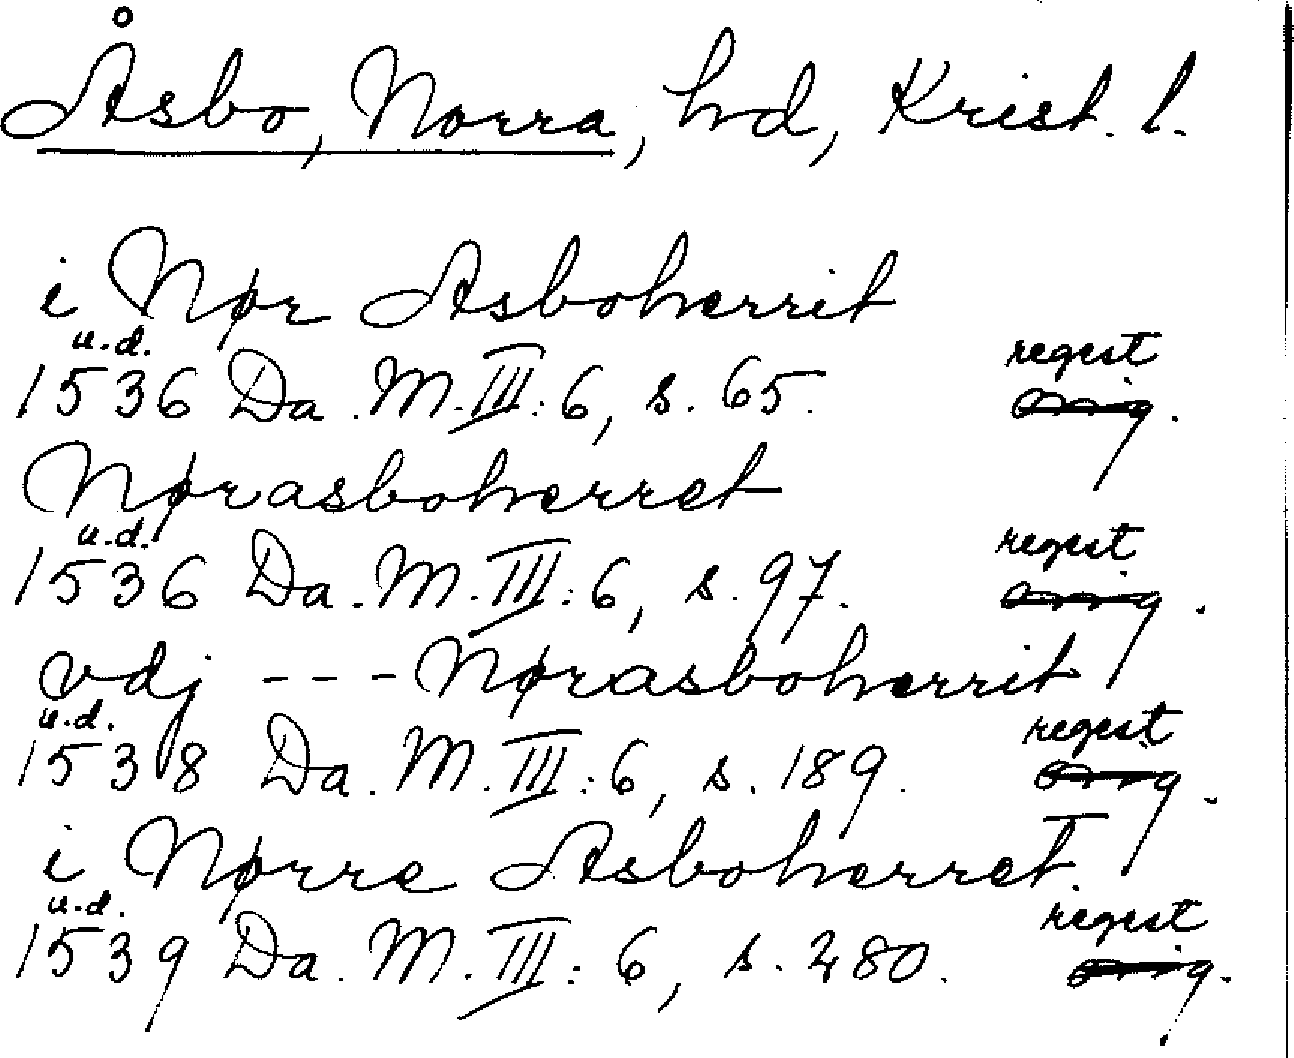 Åsbo, Norra, hd, Krist. l.
i Nør Asboherrit
u.d. regest
1536 Da. M. III: 6, s. 65. orig.
Nørasboherret
u.d. regest
1536 Da. M. III: 6, s. 97. orig.
vdj --- Nørasboherrit
u.d. regest
1538 Da. M. III: 6, s. 189. orig.
i Nørre Asboherret.
u.d. regest
1539 Da. M. III: 6, s. 280. orig.